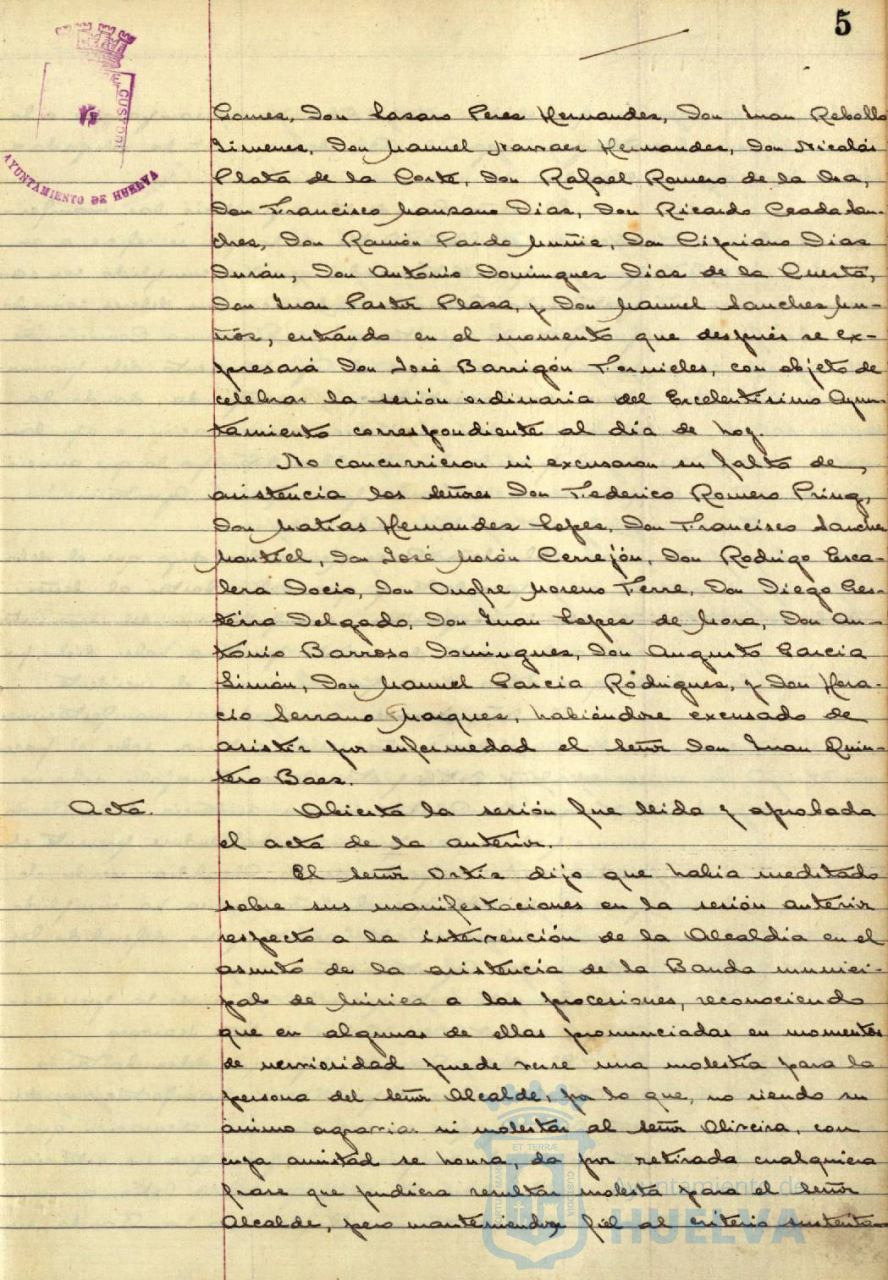 5
CUSTODI
AYUNTAMIENTO DE HUELVA
Gomes, Don Lasaro Peres Hernandes, Don Juan Rebollo
Jimenes, Don Manuel Narvaes Hernandes, Don Nicolás
Plata de la Corte, Don Rafael Romero de la Osa,
Don Francisco Mansano Dias, Don Ricardo Ceada San-
ches, Don Ramón Pardo Muñis, Don Cipriano Dias
Durán, Don Antonio Domingues Dias de la Cuesta,
Don Juan Pastor Plasa, y Don Manuel Sanches Mu-
ños, entrando en el momento que después se ex-
presará Don José Barrigón Fornieles, con objeto de
celebrar la sesión ordinaria del Excelentísimo Ayun-
tamiento correspondiente al día de hoy.
No concurrieron ni excusaron su falta de
asistencia los señores Don Federico Romero Pring,
Don Matías Hernandes Lopes, Don Francisco Sanches
Montiel, Don José Morón Cerrejón, Don Rodrigo Esca-
lera Socio, Don Onofre Moreno Ferre, Don Diego Ges-
tera Delgado, Don Juan Lopes de Mora, Don An-
tonio Barroso Domingues, Don Augusto García
Simón, Don Manuel GarcíaRódrigues, y Don Hora-
cio Serrano Marques, habiéndose excusado de
asistir por enfermedad el señor Don Juan Quin-
tero Baes.
Acta. Abierta la sesión fue leida y aprobada
el acta de la anterior.
El señor Ortis dijo que había meditado
sobre sus manifestaciones en la sesión anterior
respecto a la intervención de la Alcaldía en el
asunto de la asistencia de la Banda munici-
pal de música a las procesiones, reconociendo
que en algunas de ellas pronunciadas en momentos
de nerviosidad puede verse una molestia para la
persona del señor Alcalde, por lo que, no siendo su
ánimo agraviar ni molestar al señor Oliveira, con
cuya amistad se honra, da por retirada cualquiera
frase que pudiera resultar molesta para el señor
Alcalde, pero manteniendose fiel al criterio sustenta-
ET TERRÆ
Ayuntamiento de
HUELVA